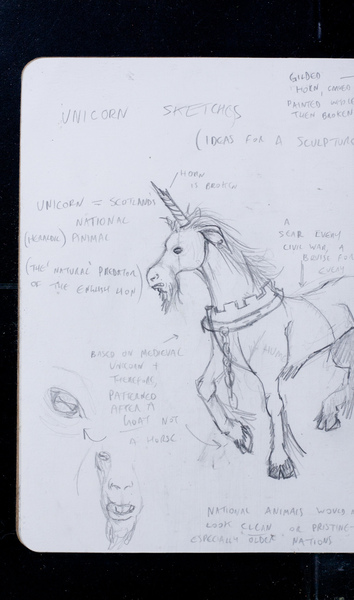 GILDED
HORN, CARVED
PAINTED
THEN BROKEN
UNICORN SKETCHES
(IDEAS FOR A SCULPTURE
HORN
IS BROKEN
UNICORN = SCOTLAND'S
NATIONAL
(HERALDIC) ANIMAL
(THE 'NATURAL' PREDATOR
OF THE ENGLISH LION
A
SCAR EVERY
CIVIL WAR, A
BRUISE FOR
EVERY
BASED ON MEDIEVAL
UNICORN +
THEREFORE,
PATTERNED
AFTER A
GOAT NOT
A HORSE
NATIONAL ANIMALS WOULD
LOOK CLEAN OR PRISTINE
ESPECIALLY 'OLDER' NATIONS